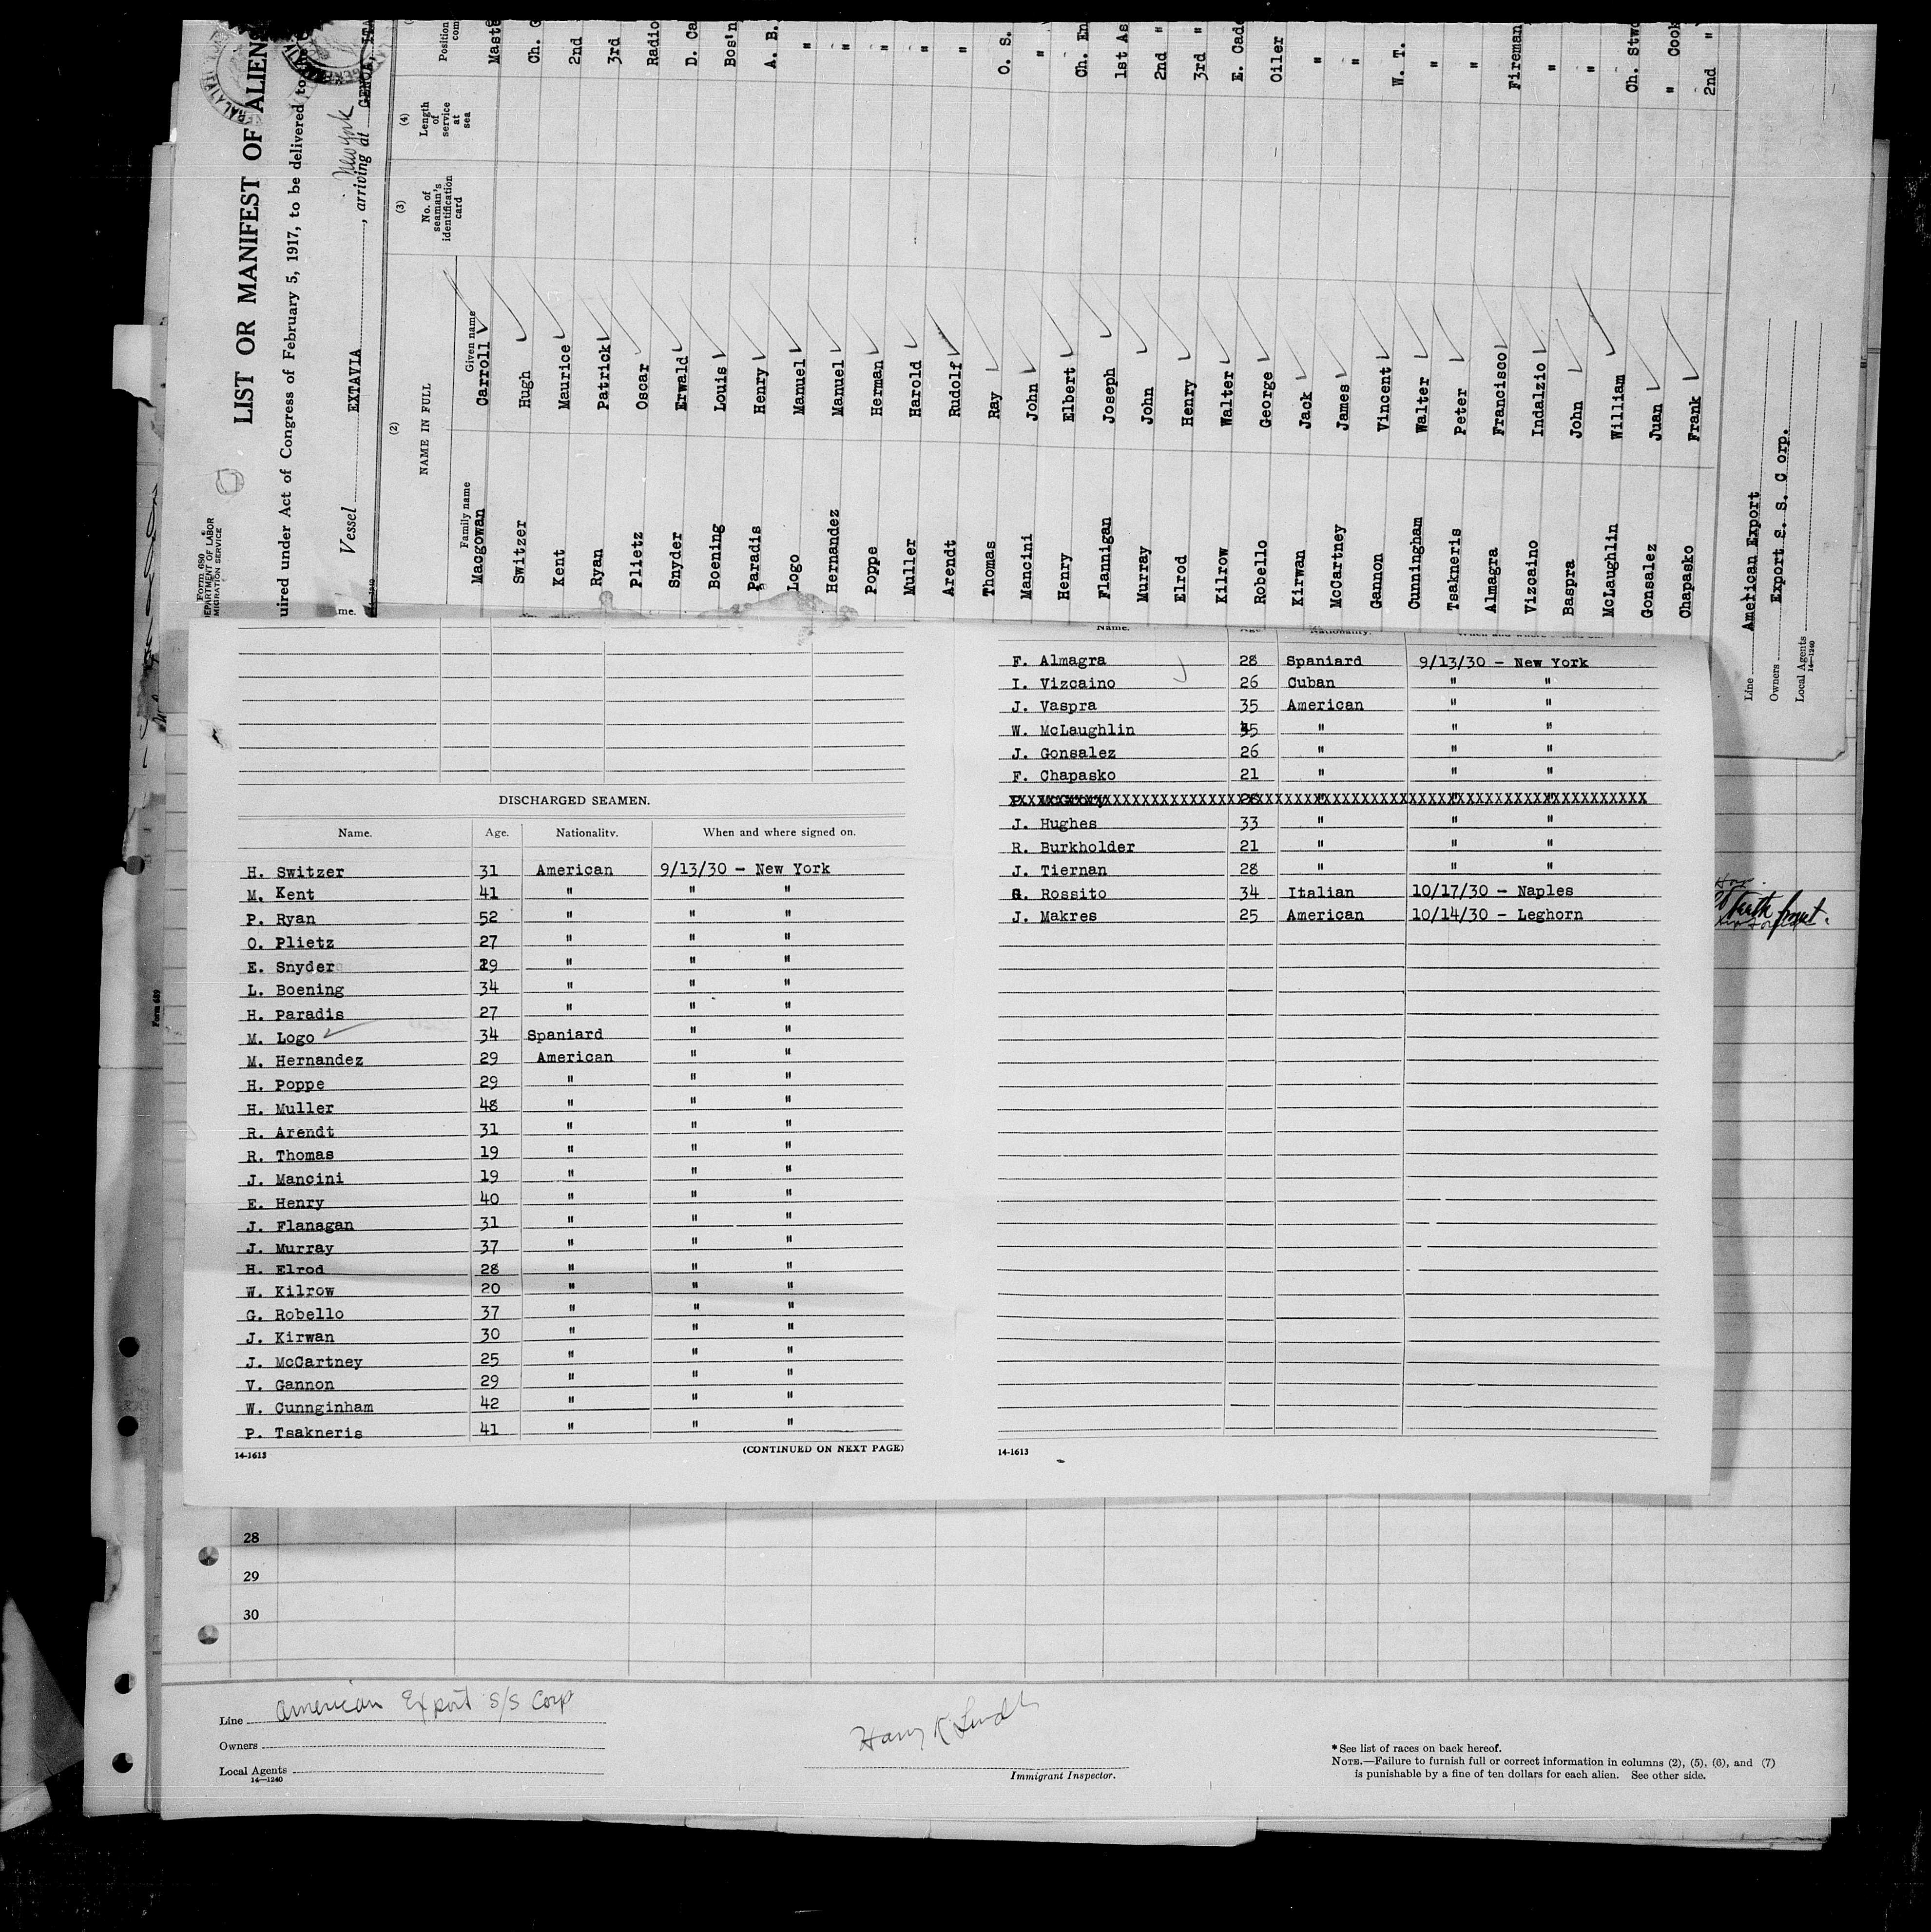 Form 680
DEPARTMENT OF LABOR
MIGRATION SERVICE
LIST OR MANIFEST OF ALIEN
uired under Act of Congress of February 5, 1917, to be delivered to
Vessel EXTAVIA, arriving at GENOA, ITA
New York
(2)
NAME IN FULL
Family name
Given name
(3)
No. of
seaman's
identification
card
(4)
Length
of
service
at
sea
Position
com
Macgowan Carroll Maste
Switzer Hugh Ch. O
Kent Maurice 2nd
Ryan Patrick 3rd
Plietz Oscar Radio
Snyder Erwald D. Ca
Boening Louis Bos'n
Paradis Henry A. B.
Logo Manuel "
Hernandez Manuel "
Poppe Herman "
Muller Harold "
Arendt Rudolf "
Thomas Ray O. S.
Mancini John "
Henry Elbert Ch. En
Flannigan Joseph 1st As
Murray John 2nd "
Elrod Henry 3rd "
Kilrow Walter E. Cade
Robello George Oiler
Kirwan Jack "
McCartney James "
Gannon Vincent W. T.
Cunningham Walter "
Tsakneris Peter "
Almagra Francisco Fireman
Vizcaino Indalzio "
Baspra John "
McLaughlin William Ch. Stwd
Gonsalez Juan " Cook
Chapasko Frank 2nd "
Line American Export
Owners Export S. S. C orp.
Local Agents
14—1240
me.
Form 689
DISCHARGED SEAMEN.
Name. Age. Nationality. When and where signed on.
H. Switzer 31 American 9/13/30 - New York
M. Kent 41 " " "
P. Ryan 52 " " "
O. Plietz 27 " " "
E. Snyder 29 " " "
L. Boening 34 " " "
H. Paradis 27 " " "
M. Logo 34 Spaniard " "
M. Hernandez 29 American " "
H. Poppe 29 " " "
H. Muller 48 " " "
R. Arendt 31 " " "
R. Thomas 19 " " "
J. Mancini 19 " " "
E. Henry 40 " " "
J. Flanagan 31 " " "
J. Murray 37 " " "
H. Elrod 28 " " "
W. Kilrow 20 " " "
G. Robello 37 " " "
J. Kirwan 30 " " "
J. McCartney 25 " " "
V. Gannon 29 " " "
W. Cunnginham 42 " " "
P. Tsakneris 41 " " "
14-1613
(CONTINUED ON NEXT PAGE)
Name. Age Nationality. When and where signed on.
F. Almagra 28 Spaniard 9/13/30 - New York
I. Vizcaino 26 Cuban " "
J. Vaspra 35 American " "
W. McLaughlin 35 " " "
J. Gonsalez 26 " " "
F. Chapasko 21 " " "
J. Hughes 33 " " "
R. Burkholder 21 " " "
J. Tiernan 28 " " "
G. Rossito 34 Italian 10/17/30 - Naples
J. Makres 25 American 10/14/30 - Leghorn
14-1613
28
29
30
Line American Export S/S Corp
Owners
Local Agents
14—1240
Harry K.
Immigrant Inspector.
* See list of races on back hereof.
NOTE.—Failure to furnish full or correct information in columns (2), (5), (6), and (7)
is punishable by a fine of ten dollars for each alien. See other side.